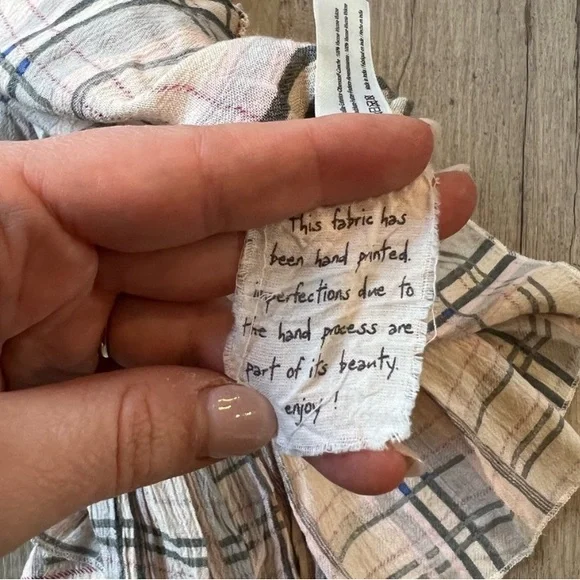 This fabric has
been hand printed.
imperfections due to
the hand process are
part of its beauty.
enjoy!